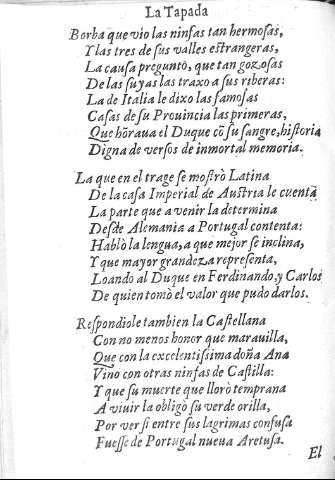 La Tapada
Borba que vio las ninfas tan hermosas,
Y las tres de sus valles estrangeras,
La causa preguntò, que tan gozosas
De las suyas las traxo a sus riberas:
La de Italia le dixo las famosas
Casas de su Prouincia las primeras,
Que hõraua el Duque cõ su sangre, historia
Digna de versos de inmortal memoria.
La que en el trage se mostrò Latina
De la casa Imperial de Austria le cuenta
La parte que a venir la determina
Desde Alemania a Portugal contenta:
Hablò la lengua, a que mejor se inclina,
Y que mayor grandeza representa,
Loando al Duque en Ferdinando, y Carlos
De quien tomò el valor que pudo darlos.
Respondiole tambien la Castellana
Con no menos honor que marauilla,
Que con la excelentissima doña Ana
Vino con otras ninfas de Castilla:
Y que su muerte que llorò temprana
A viuir la obligò su verde orilla,
Por ver si entre sus lagrimas confusa
Fuesse de Portugal nueua Aretusa.
El